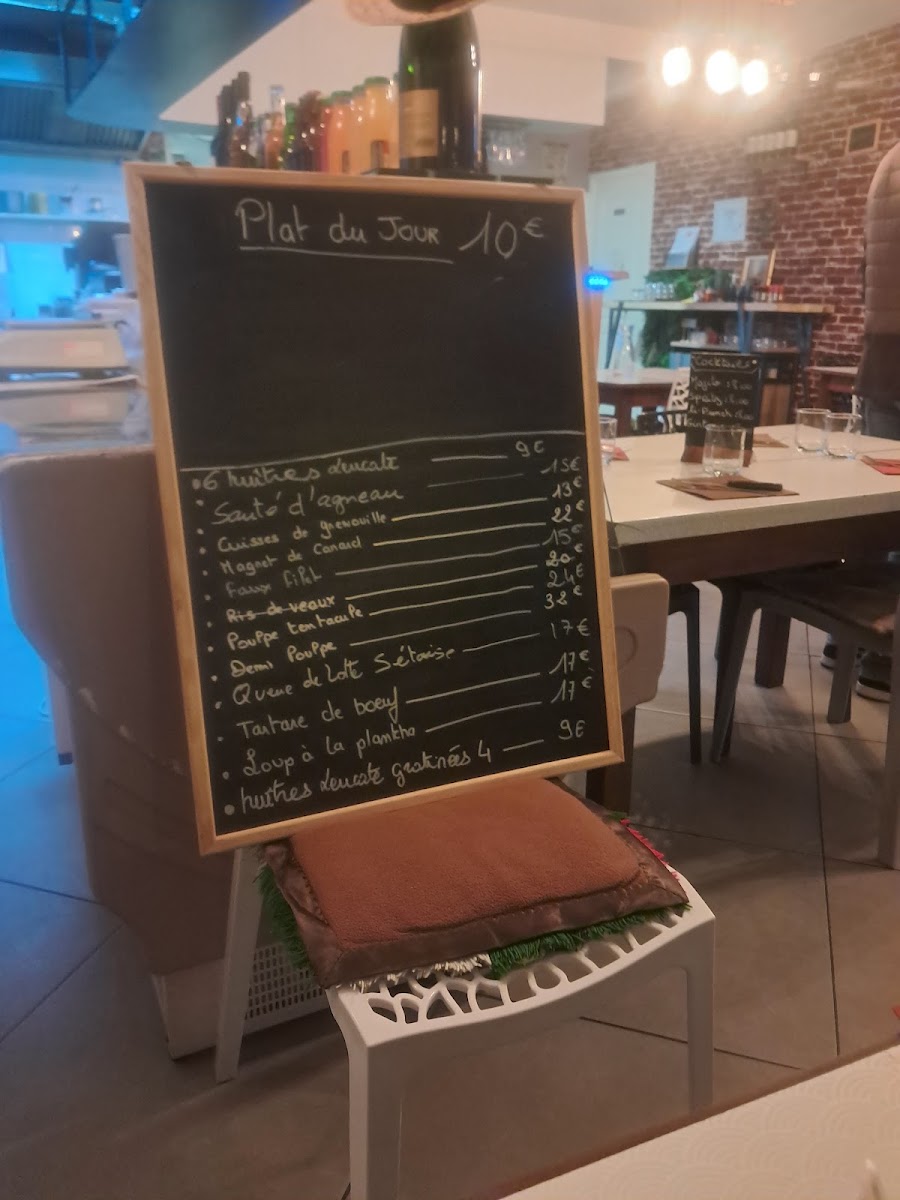 Plat du Jour 10€
• 6 huîtres Leucate — 9€
• Sauté d'agneau — 15€
• Cuisses de grenouille — 13€
• Magret de Canard — 22€
• Faux filet — 15€
• Ris de veaux — 20€
• Pouppe tentacule — 24€
• Demi Pouppe — 32€
• Queue de Lotte Sétoise — 17€
• Tartare de boeuf — 17€
• Loup à la plancha — 17€
• huîtres Leucate gratinées 4 — 9€
Cocktails